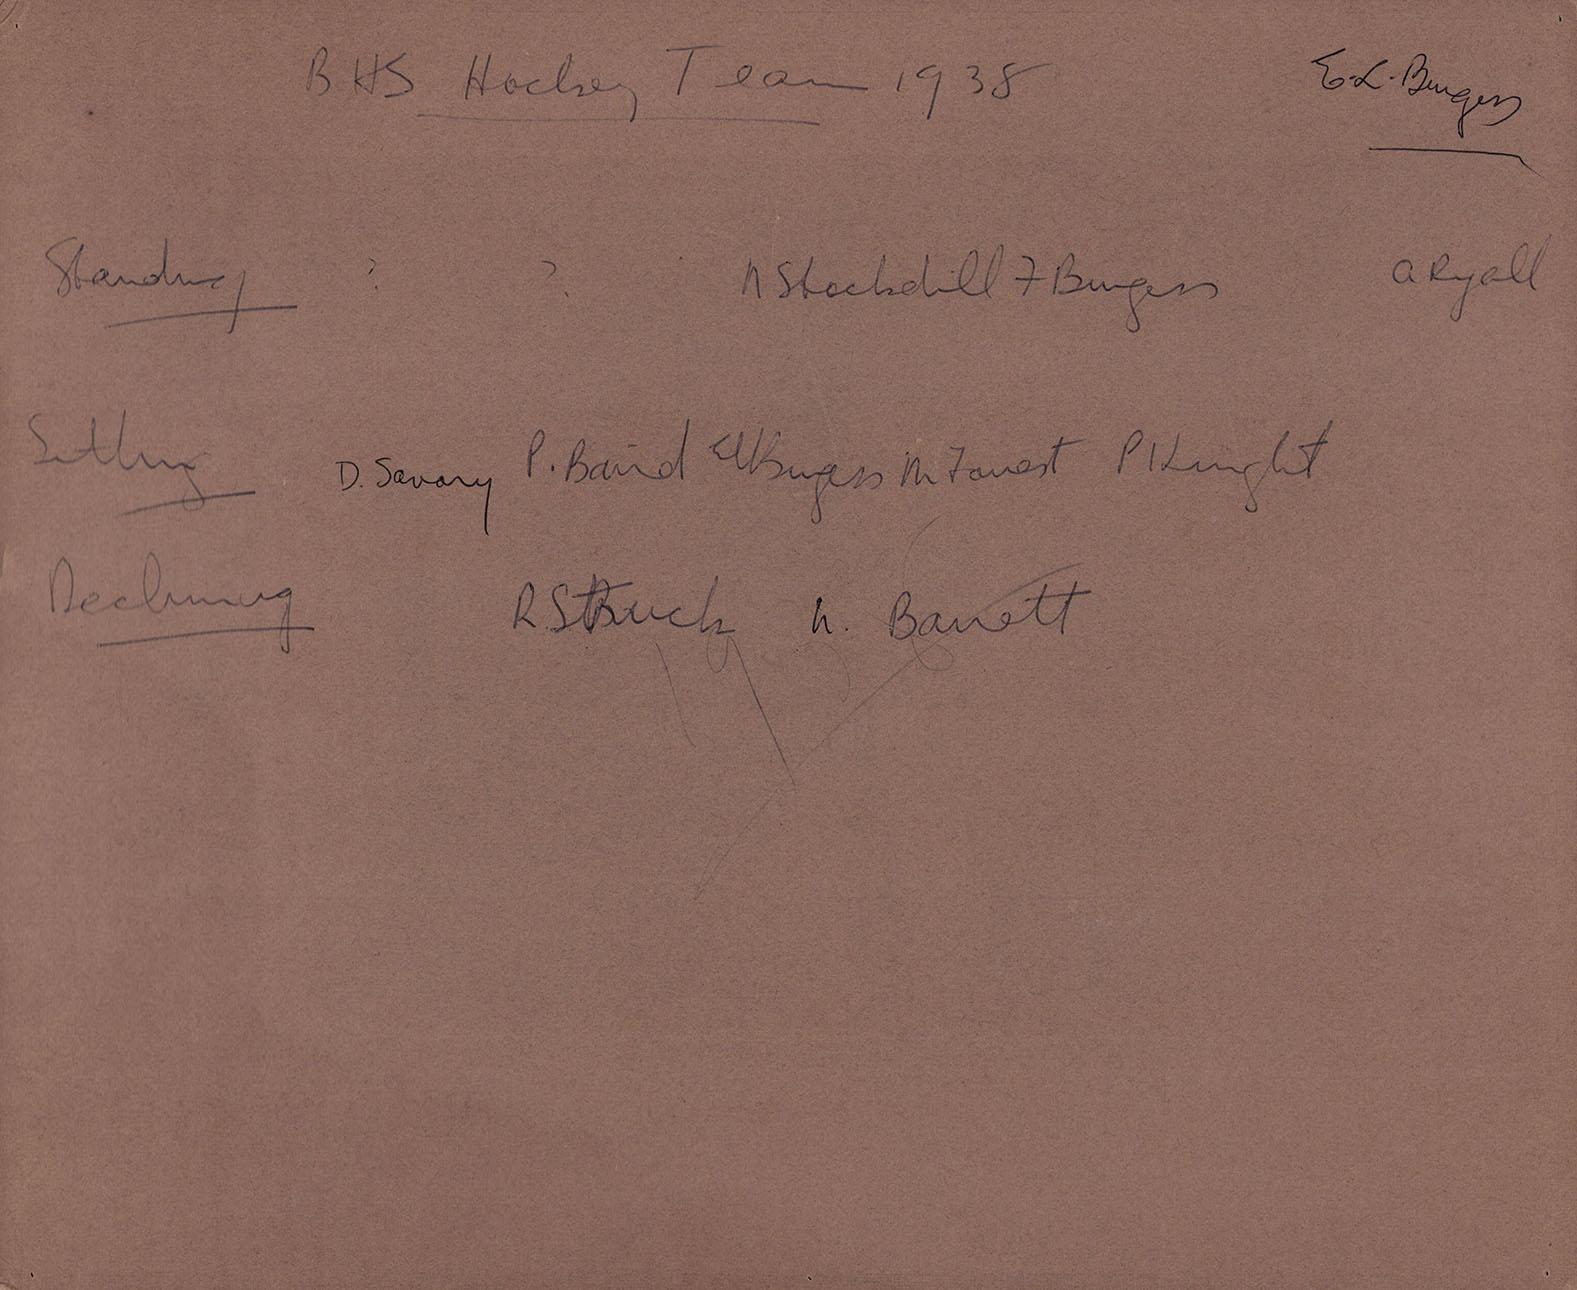 BHS Hockey Team 1938
E.L. Burgess
Standing ? ? N Stockdill F Burgess A Ryall
Sitting D. Savary P. Baird EL Burgess M Forrest P Knight
Reclining R St Buck N. Barrett